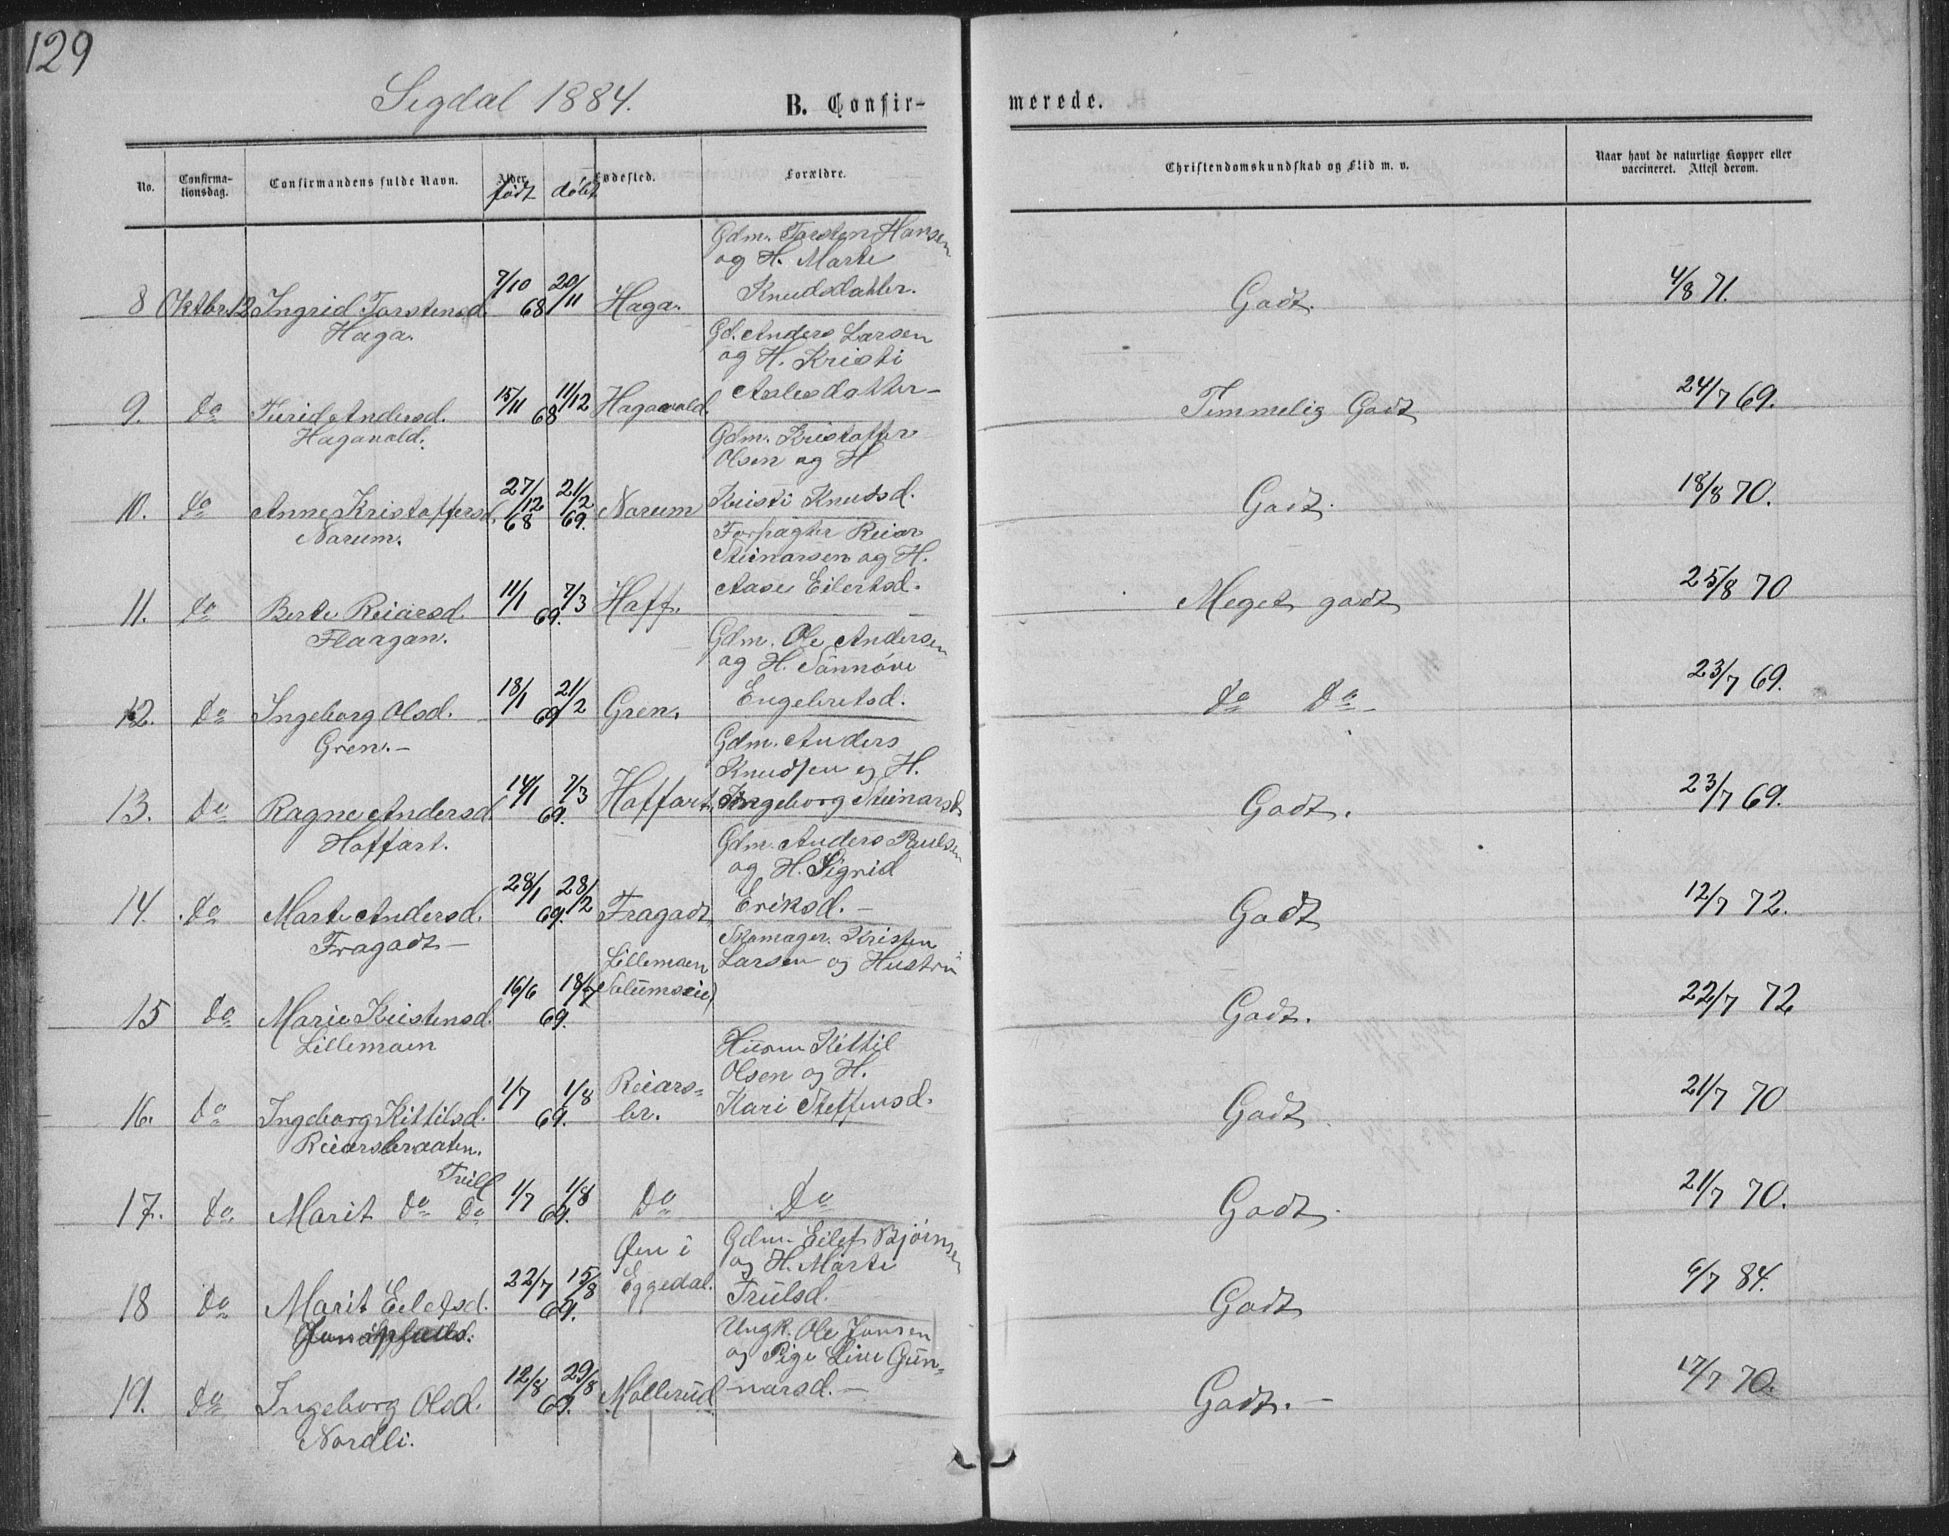 129
Sigdal 1884.
B. Confir-
merede.
No.
Confirma-
tionsdag.
Confirmandens fulde Navn.
Alder.
født
døbt
Fødested.
Forældre.
Christendomskundskab og Flid m. v.
Naar havt de naturlige Kopper eller
vaccineret. Attest derom.
Gdm. Torsten Hansen
og H. Marte
Knudsdatter.
8 Oktbr. 12 Ingrid Torstensd. 7/10 68 20/11 Haga. Godt. 4/8 71.
Haga.
Gd. Anders Larsen
og H. Kristi
Aslesdatter-
9. do Turid Andersd. 15/11 68 11/12 Hagavold Temmelig Godt 24/7 69.
Hagavold.
Gdm. Kristoffer
Olsen og H
10. do Anne Kristoffersd. 27/12 68 21/2 69. Narum Kristi Knutsd. Godt. 18/8 70.
Narum.
Forpagter Reiar
Steinarsen og H.
11. do Berte Reiarsd. 11/1 69. 7/3 Haff. Aase Eilertsd. Meget godt 25/8 70
Flaagan.
Gdm. Ole Andersen
og H. Sønnøve
12. do Ingeborg Olsd. 18/1 69 21/2 Gren. Engebretsd. do do 23/7 69.
Gren.-
Gdm. Anders
Knudsen og H.
13. do Ragne Andersd. 14/1 69. 7/3 Hoffart. Ingeborg Steinarsd. Godt. 23/7 69.
Hoffart.
Gdm. Anders Paulsen
og H. Sigrid
14. do Marte Andersd. 28/1 69. 28/2 Fragadt Eriksd.- Godt 12/7 72.
Fragadt-
Skomager. Kristen
Larsen og Hustru
15 do Marie Kristensd. 16/6 69. 18/7 Lillemoen Solumseie) Godt. 22/7 72
Lillemoen
Husm Kittil
Olsen og H.
16. do Ingeborg Kittilsd. 1/7 69. 1/8 Reiars=br. Kari Steffensd. Godt 21/7 70
Reiarsbraaten.
Tvill
17. do Marit do do 1/7 69. 1/8 do do Godt 21/7 70.
Gdm. Eilef Bjørnsen
og H. Marte
18 do Marit Eilefsd. 22/7 69. 15/8 Øen i Eggedal. Trulsd. Godt 6/7 84.
Ungk. Ole Jonsen
og Pige Live Gun=
19. do Ingeborg Olsd. 12/8 69. 29/8 Mollerud narsd.- Godt.- 17/7 70.
Nordli.